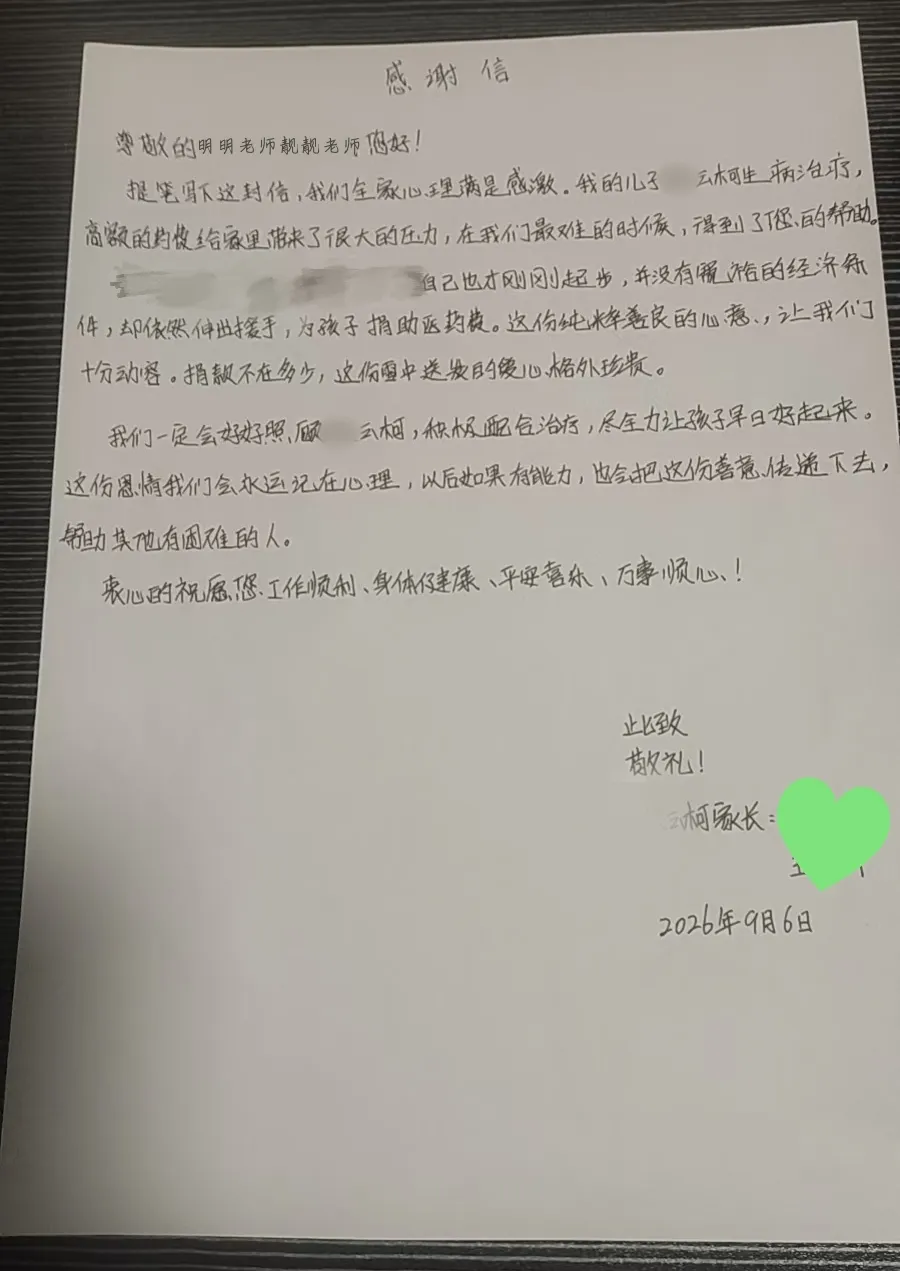 感谢信
尊敬的明明老师靓靓老师您好!
提笔写下这封信，我们全家心理满是感激。我的儿子 云柯生病治疗，
高额的药费给家里带来了很大的压力，在我们最难的时候，得到了您的帮助。
自己也才刚刚起步，并没有宽裕的经济条
件，却依然伸出援手，为孩子捐助医药费。这份纯粹善良的心意，让我们
十分动容。捐款不在多少，这份雪中送炭的爱心格外珍贵。
我们一定会好好照顾 云柯，积极配合治疗，尽全力让孩子早日好起来。
这份恩情我们会永远记在心理，以后如果有能力，也会把这份善意传递下去，
帮助其他有困难的人。
衷心的祝愿您工作顺利、身体健康、平安喜乐、万事顺心！
此致
敬礼!
云柯家长：
2026年9月6日